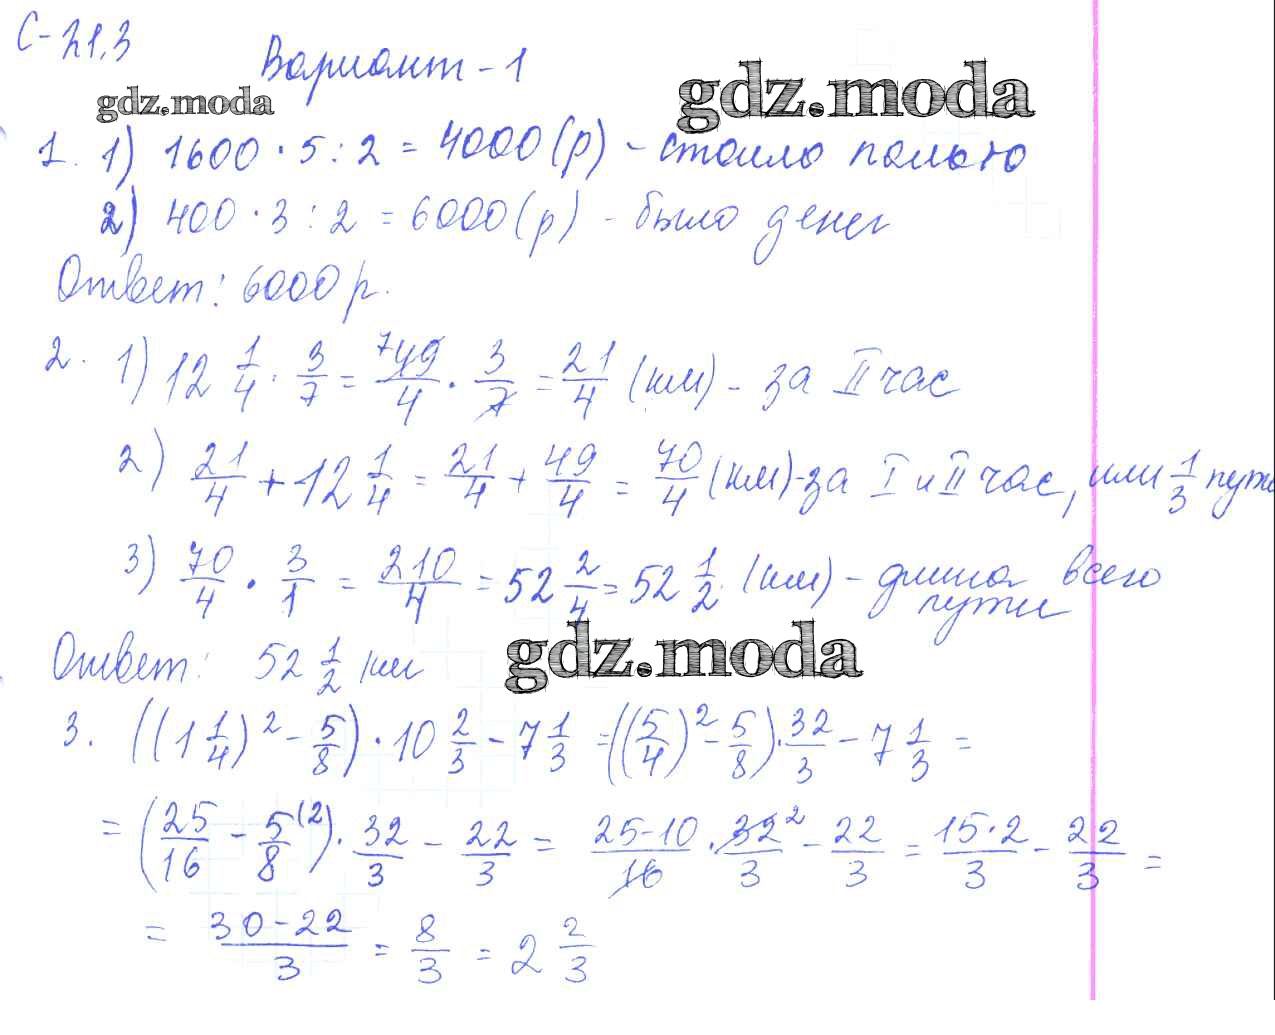 С-21,3
Вариант-1
gdz.moda
gdz.moda
1. 1) 1600 · 5 : 2 = 4000 (р) - стоило пальто
2) 400 · 3 : 2 = 6000 (р) - было денег
Ответ: 6000 р.
2. 1) 12 1/4 · 3/7 = 49/4 · 3/7 = 21/4 (км) - за II час
2) 21/4 + 12 1/4 = 21/4 + 49/4 = 70/4 (км) - за I и II час, или 1/3 пути
3) 70/4 · 3/1 = 210/4 = 52 2/4 = 52 1/2 (км) - длина всего
пути
gdz.moda
Ответ: 52 1/2 км
3. ((1 1/4)² - 5/8) · 10 2/3 - 7 1/3 = ((5/4)² - 5/8) · 32/3 - 7 1/3 =
= (25/16 - 5/8 (2) · 32/3 - 22/3 = 25-10/16 · 32/3 2 - 22/3 = 15·2/3 - 22/3 =
= 30-22/3 = 8/3 = 2 2/3